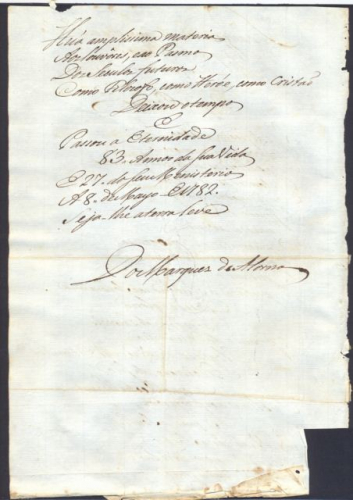 Huã amplissima materia
Aos louvores, e ao Pasmo
Dos seculos futuros
Como Filosofo, como Heróe, como Cristaõ
Deixou o tempo
E
Passou a Eternidade
83. Annos da sua Vida
E 27. do seu Menisterio
A 8. de Mayo E 1782.
Seja-lhe a terra leve
Do Marquez de Alorna